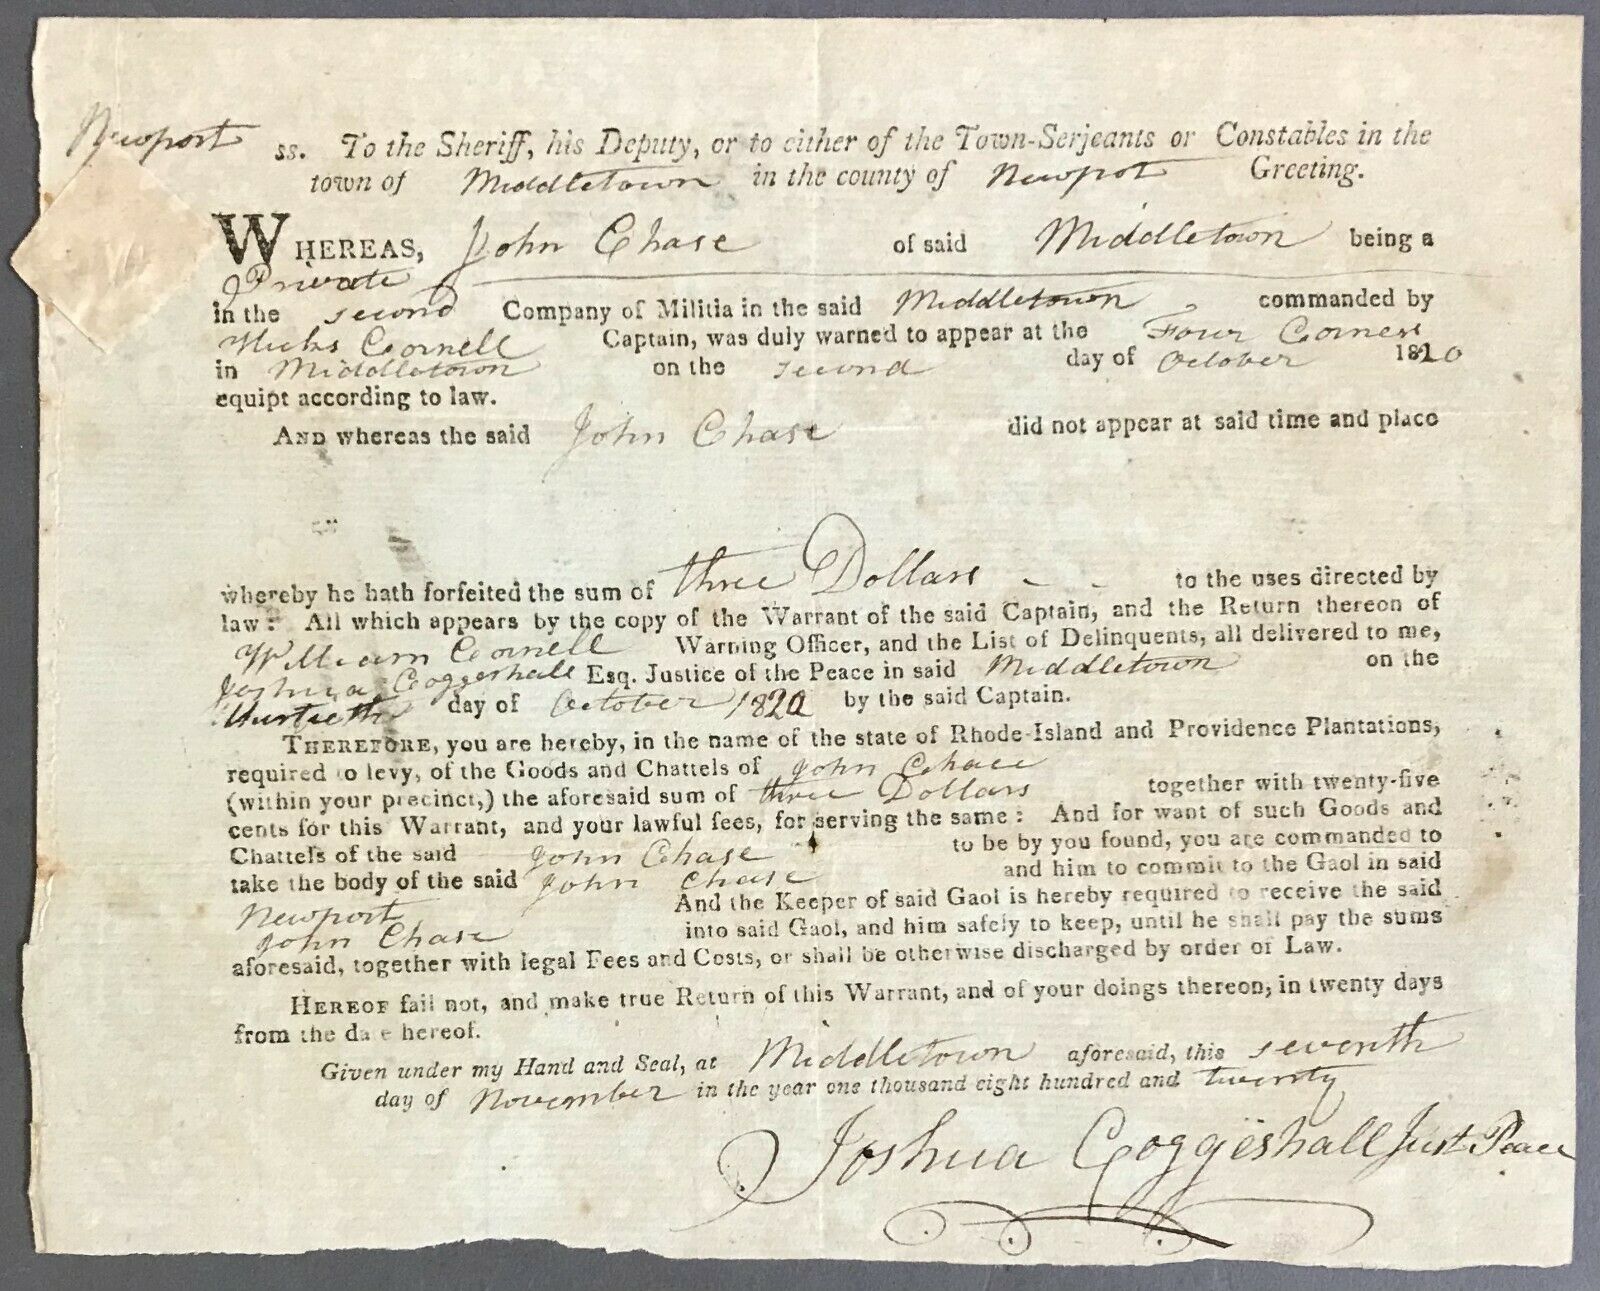 Newport ss. To the Sheriff, his Deputy, or to either of the Town-Serjeants or Constables in the
town of Middletown in the county of Newpot Greeting.
WHEREAS, John Chase of said Middletown being a
Private
in the second Company of Militia in the said Middletown commanded by
Hicks Cornell Captain, was duly warned to appear at the Four Corners
in Middletown on the second day of October 1820
equipt according to law.
AND whereas the said John Chase did not appear at said time and place
whereby he hath forfeited the sum of three Dollars - - to the uses directed by
law: All which appears by the copy of the Warrant of the said Captain, and the Return thereon of
William Cornell Warning Officer, and the List of Delinquents, all delivered to me,
Joshua Coggeshall Esq. Justice of the Peace in said Middletown on the
day of October 1820 by the said Captain.
THEREFORE, you are hereby, in the name of the state of Rhode-Island and Providence Plantations,
required to levy, of the Goods and Chattels of John Chace
(within your precinct,) the aforesaid sum of three Dollars together with twenty-five
cents for this Warrant, and your lawful fees, for serving the same: And for want of such Goods and
Chattels of the said John Chase to be by you found, you are commanded to
take the body of the said John Chase and him to commit to the Gaol in said
Newport And the Keeper of said Gaol is hereby required to receive the said
John Chase into said Gaol, and him safely to keep, until he shall pay the sums
aforesaid, together with legal Fees and Costs, or shall be otherwise discharged by order of Law.
HEREOF fail not, and make true Return of this Warrant, and of your doings thereon, in twenty days
from the da e hereof.
Given under my Hand and Seal, at Middletown aforesaid, this seventh
day of November in the year one thousand eight hundred and twenty
Joshua Coggeshall Just Peace